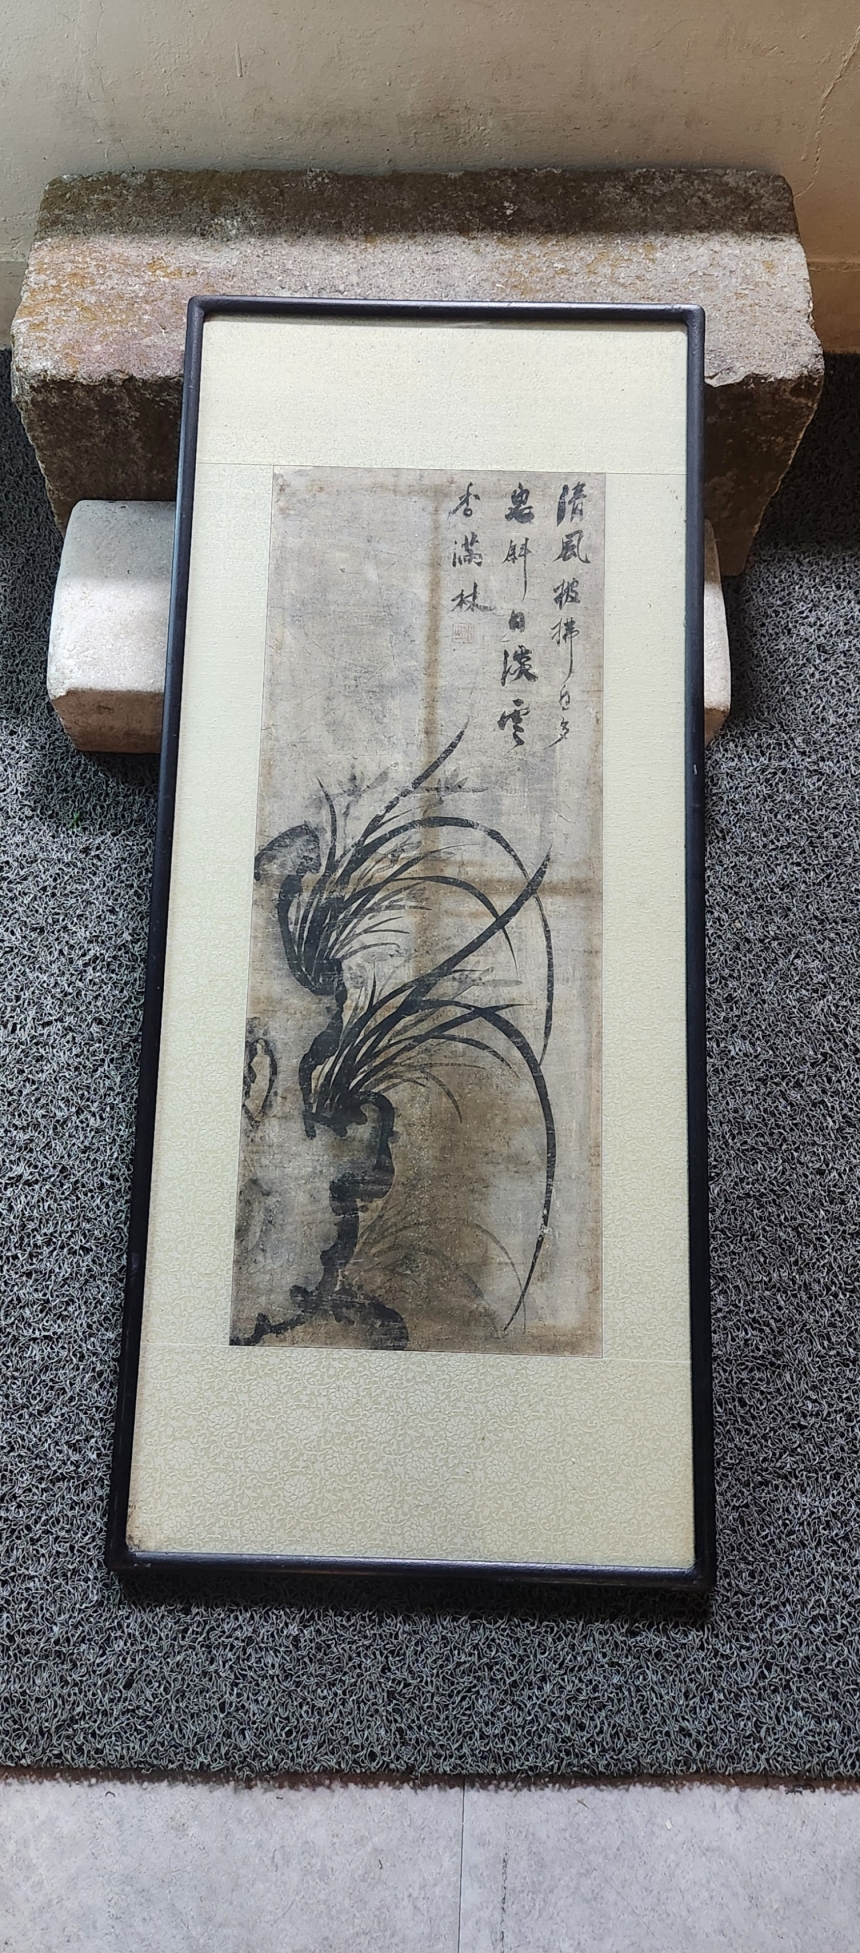 清風披拂自多
思斜日淡雲
香滿林